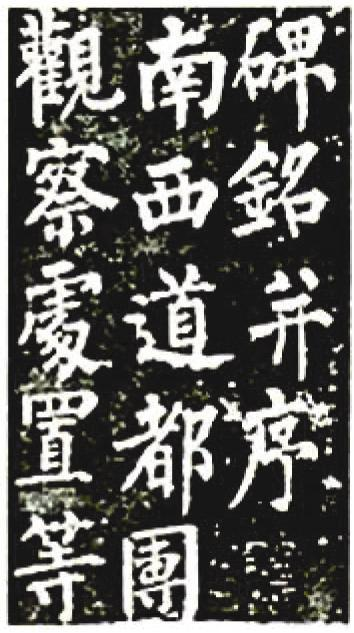 碑銘并序
南西道都團
觀察處置等